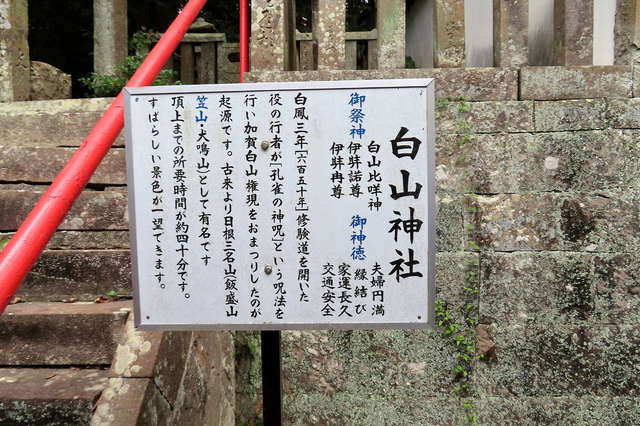 白山神社
御祭神
白山比咩神
伊弉諾尊
伊弉冉尊
御神徳
夫婦円満
縁結び
家運長久
交通安全
白鳳三年[六百五十年]修験道を開いた
役の行者が「孔雀の神呪」という呪法を
行い加賀白山権現をおまつりしたのが
起源です。古来より日根三名山(飯盛山
笠山・犬鳴山)として有名です
頂上までの所要時間が約四十分です。
すばらしい景色が一望できます。